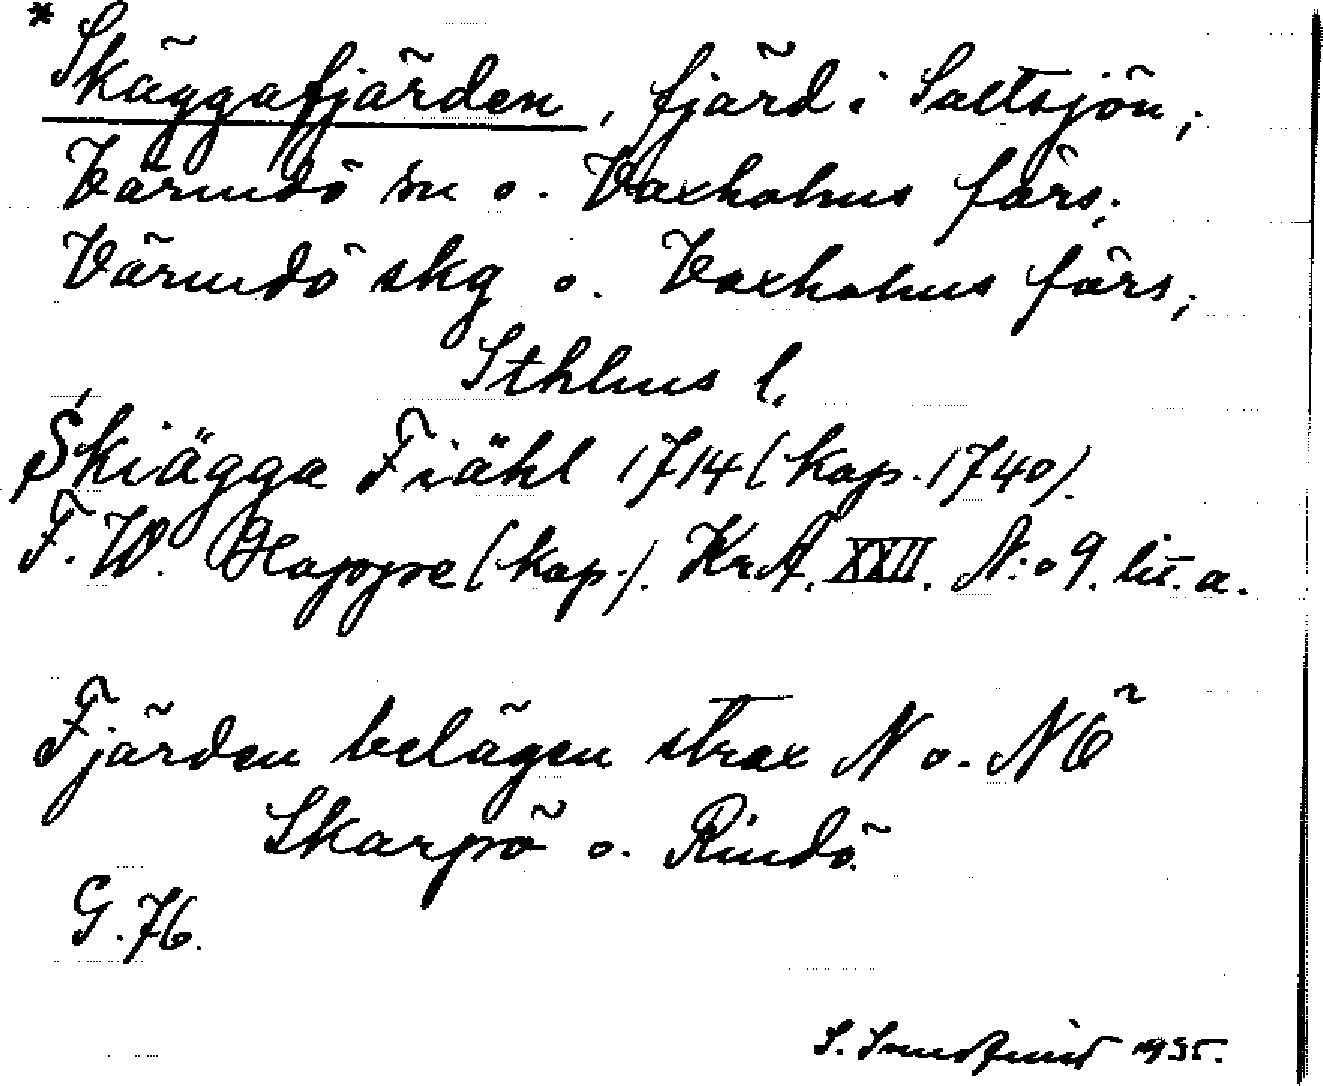 * Skäggafjärden, fjärd i Saltsjön,
Värmdö sn o. Vaxholms förs.
Värmdö skg o. Vaxholms förs,
Sthlms l.
Skiägga Fiähl 1714 (kop. 1740).
F. W. Happe (kop.). Kr A. XXII. N:o 9. lit. a.
Fjärden belägen strax N o. NÖ
Skarpö o. Rindö.
G. 76.
S. 1935.